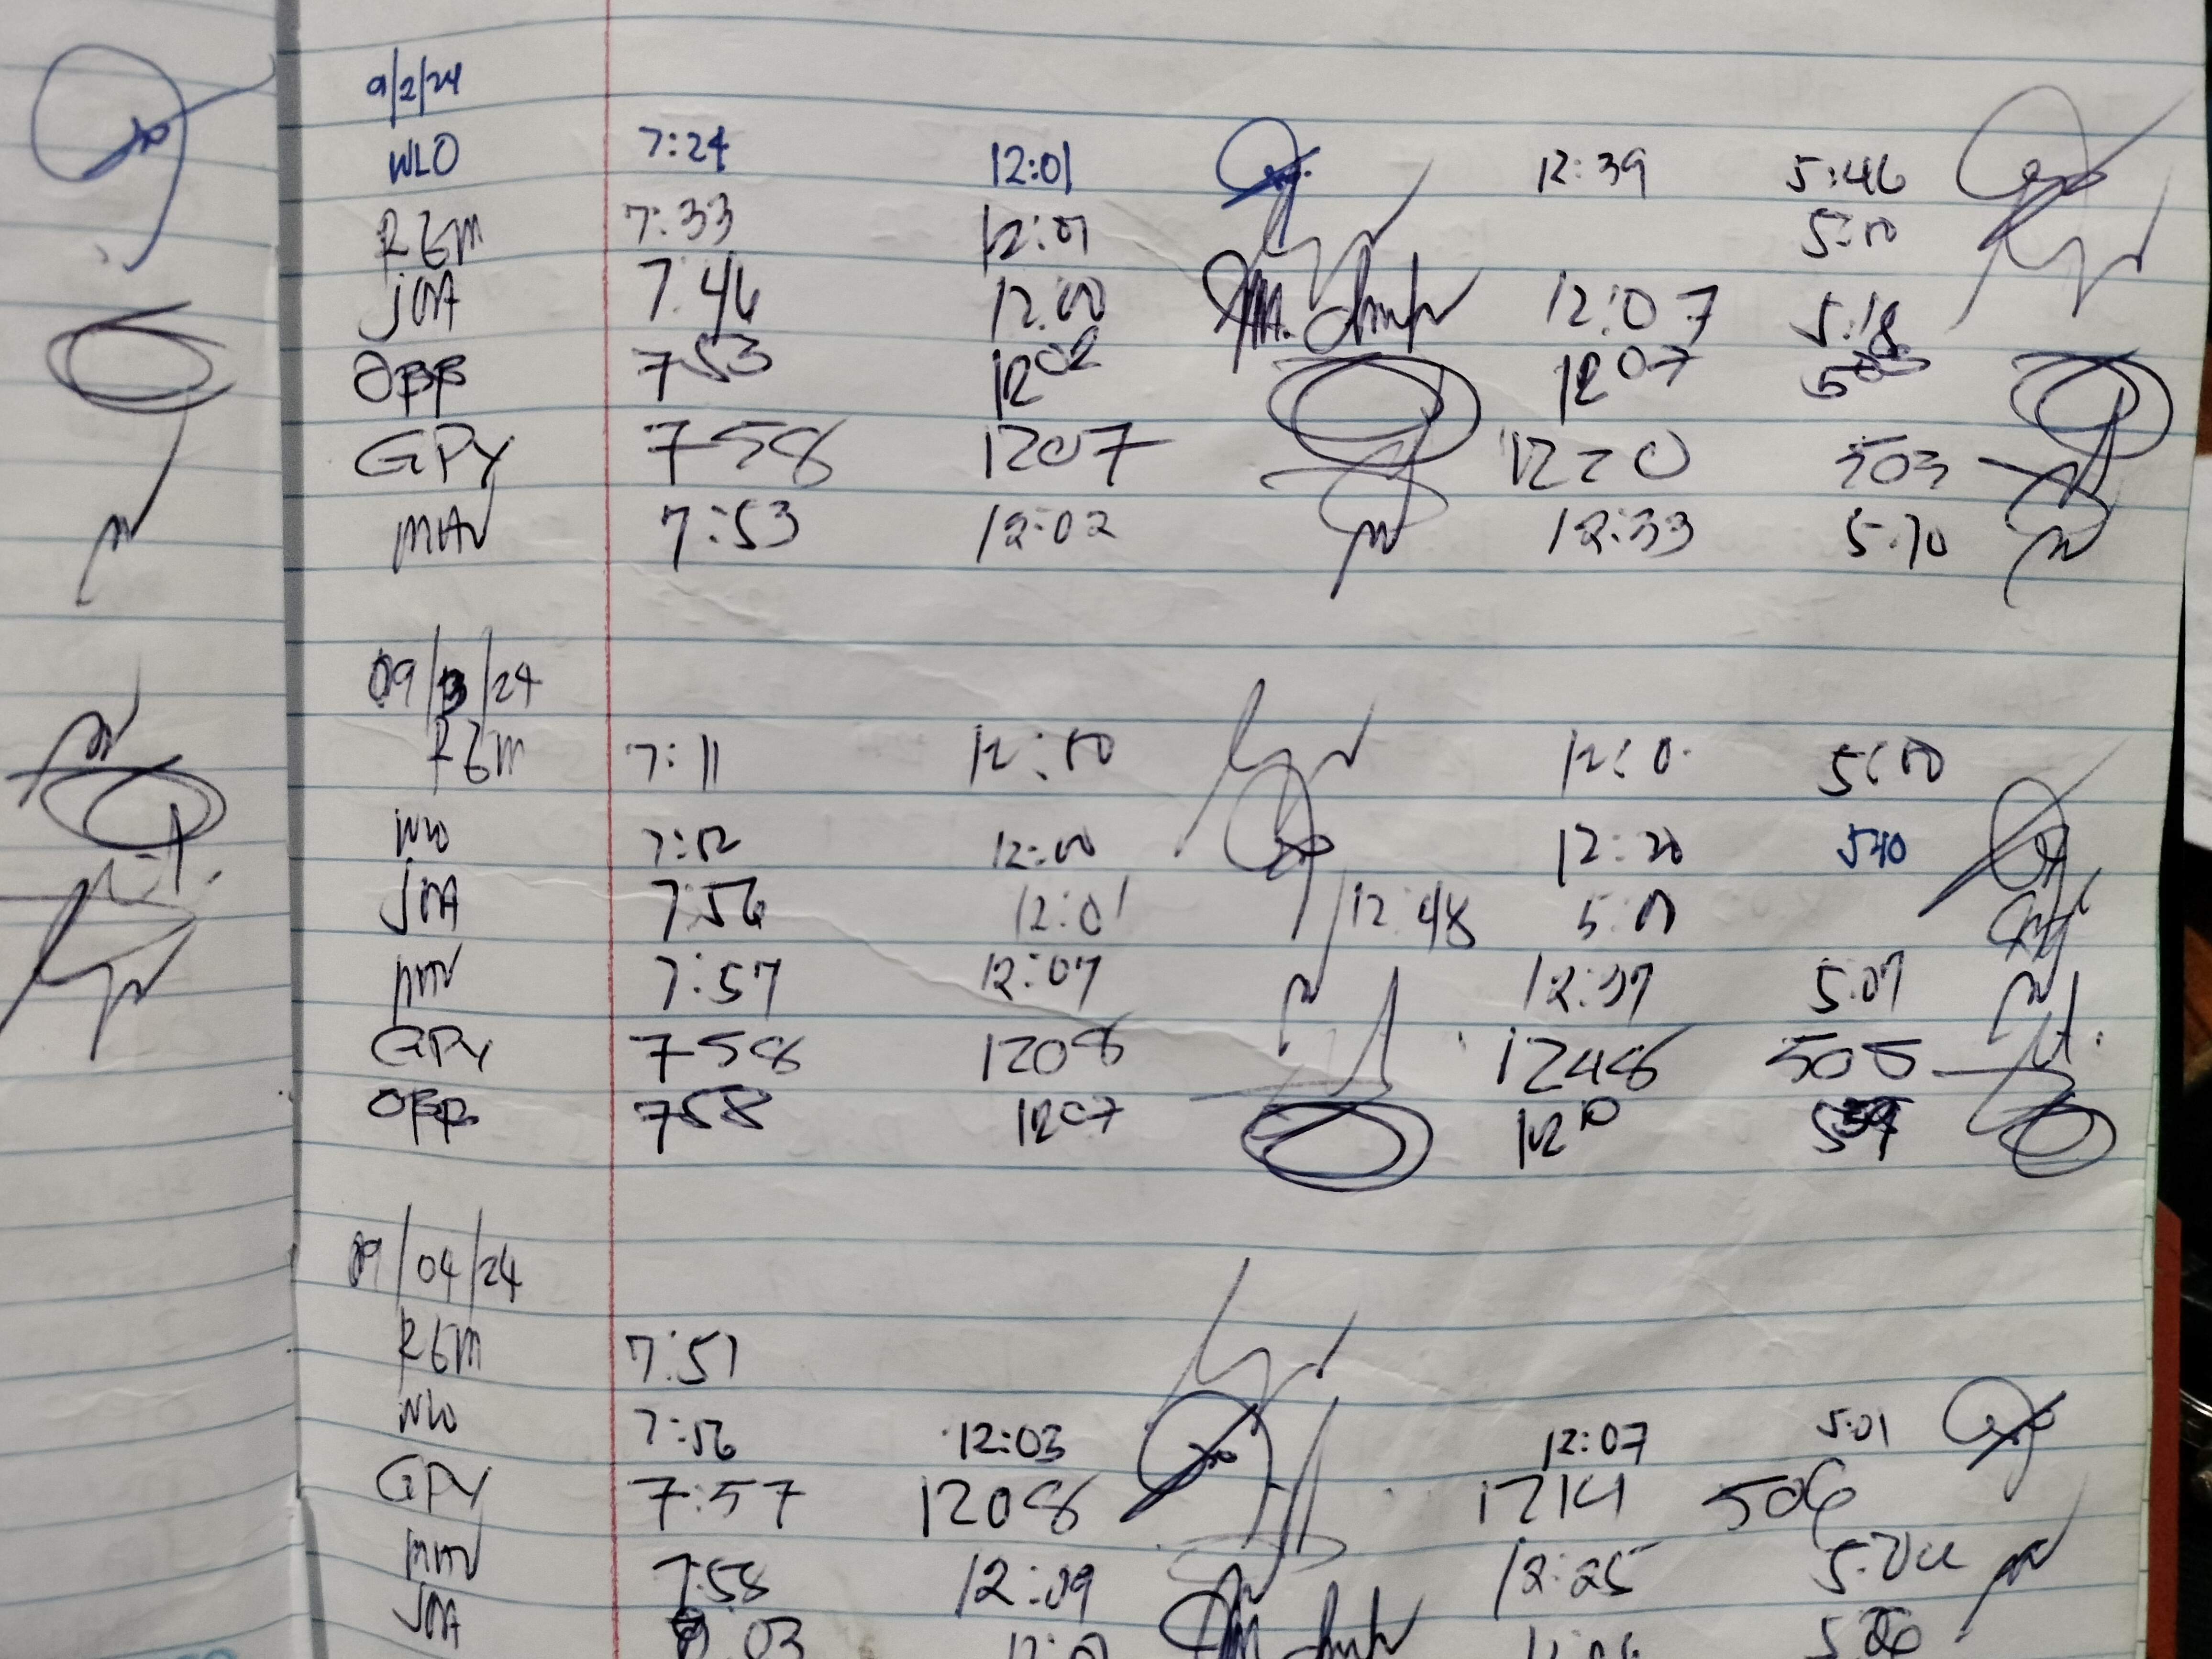 9/2/24
WLO 7:24 12:01 12:39 5:46
RGM 7:33 12:01
JOA 7:46 12:00 12:07 5:18
OBB 753 1202 1207
GPY 758 1207 1220 503
MAV 7:53 12:02 12:33 5:10
09/ /24
RGM 7:11
WLO 12:00 12:20 540
JOA 7:56 12:01 12:48 5:00
7:57 12:07 12:37 5:07
GPY 758 1208 1248 505
OBB 758 1207 1210
09/04/24
RGM 7:51
WLO 7:56 12:03 12:07 5:01
GPY 7:57 1208 1214 506
7:58 12:09 12:25
JOA